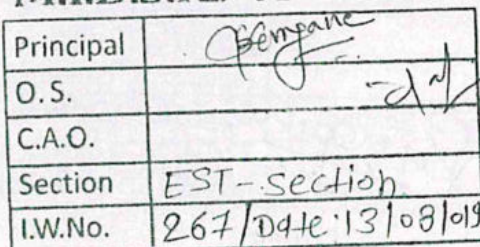 Principal
O. S.
C.A.O.
Section EST-section
I.W.No. 267/Date:13/08/019